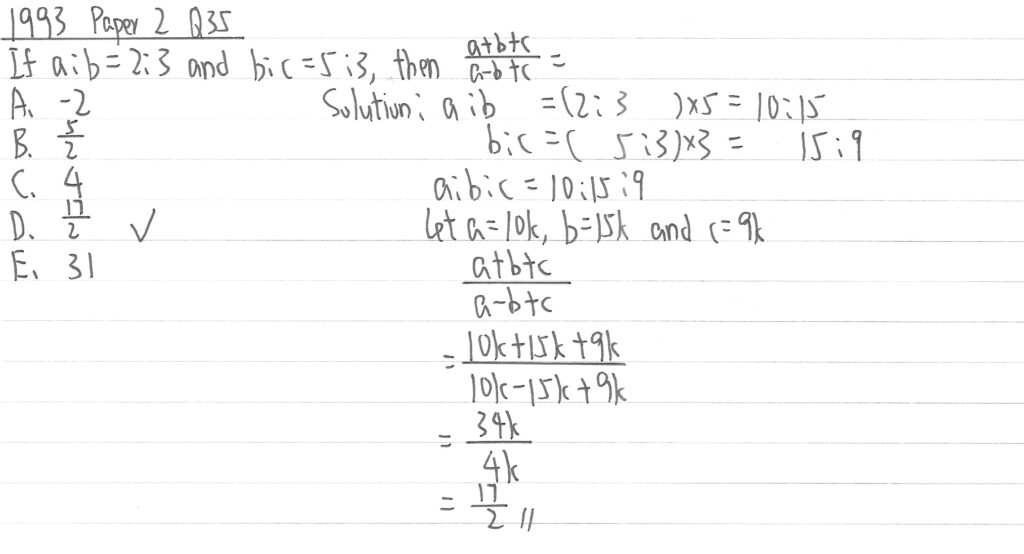 1993 Paper 2 Q35
If a:b=2:3 and b:c=5:3, then (a+b+c)/(a-b+c) =
A. -2
B. 5/2
C. 4
D. 17/2 ✓
E. 31
Solution: a:b =(2:3 )×5 = 10:15
b:c =( 5:3)×3 = 15:9
a:b:c = 10:15:9
Let a=10k, b=15k and c=9k
(a+b+c)/(a-b+c)
= (10k+15k+9k)/(10k-15k+9k)
= 34k/4k
= 17/2 //